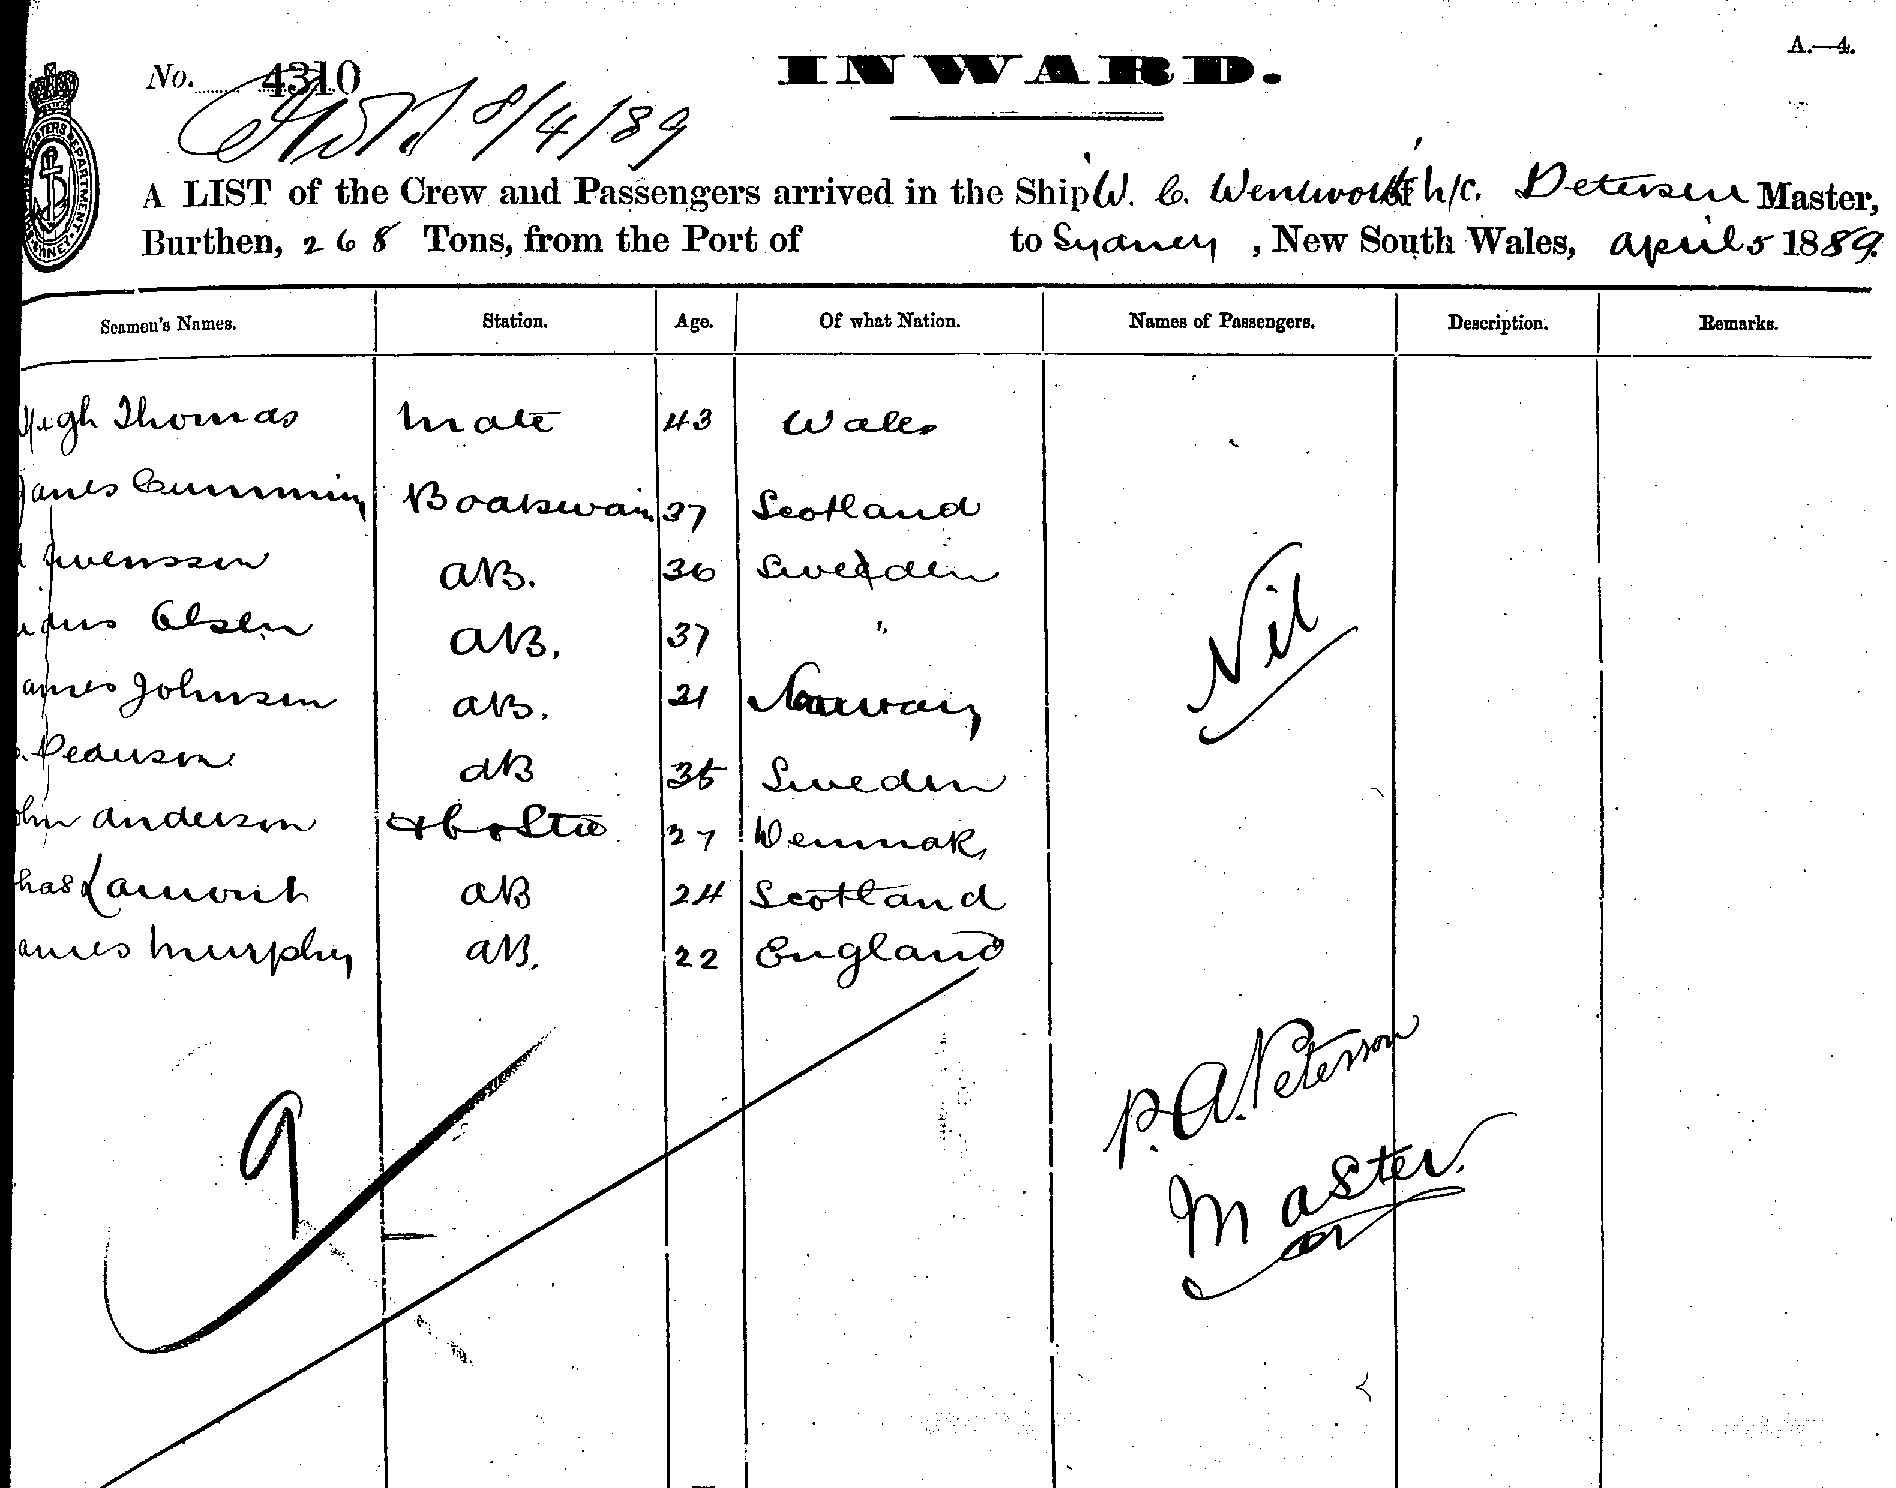 A.—4.
INWARD.
No. 4310
8/4/89
A LIST of the Crew and Passengers arrived in the Ship W. C. Wentworth Petersen Master,
Burthen, 268 Tons, from the Port of to Sydney, New South Wales, April 5 1889.
Seamen's Names. Station. Age. Of what Nation. Names of Passengers. Description. Remarks.
Hugh Thomas Mate 43 Wales
James Cumming Boatswain 37 Scotland
Swensson AB. 36 Sweden
Olsen AB. 37 "
James Johnson AB. 21 Norway
Nil
Pederson AB 35 Sweden
John Anderson 27 Denmak
Chas Lamont AB 24 Scotland
James Murphy AB. 22 England
P. A. Peterson
Master
9